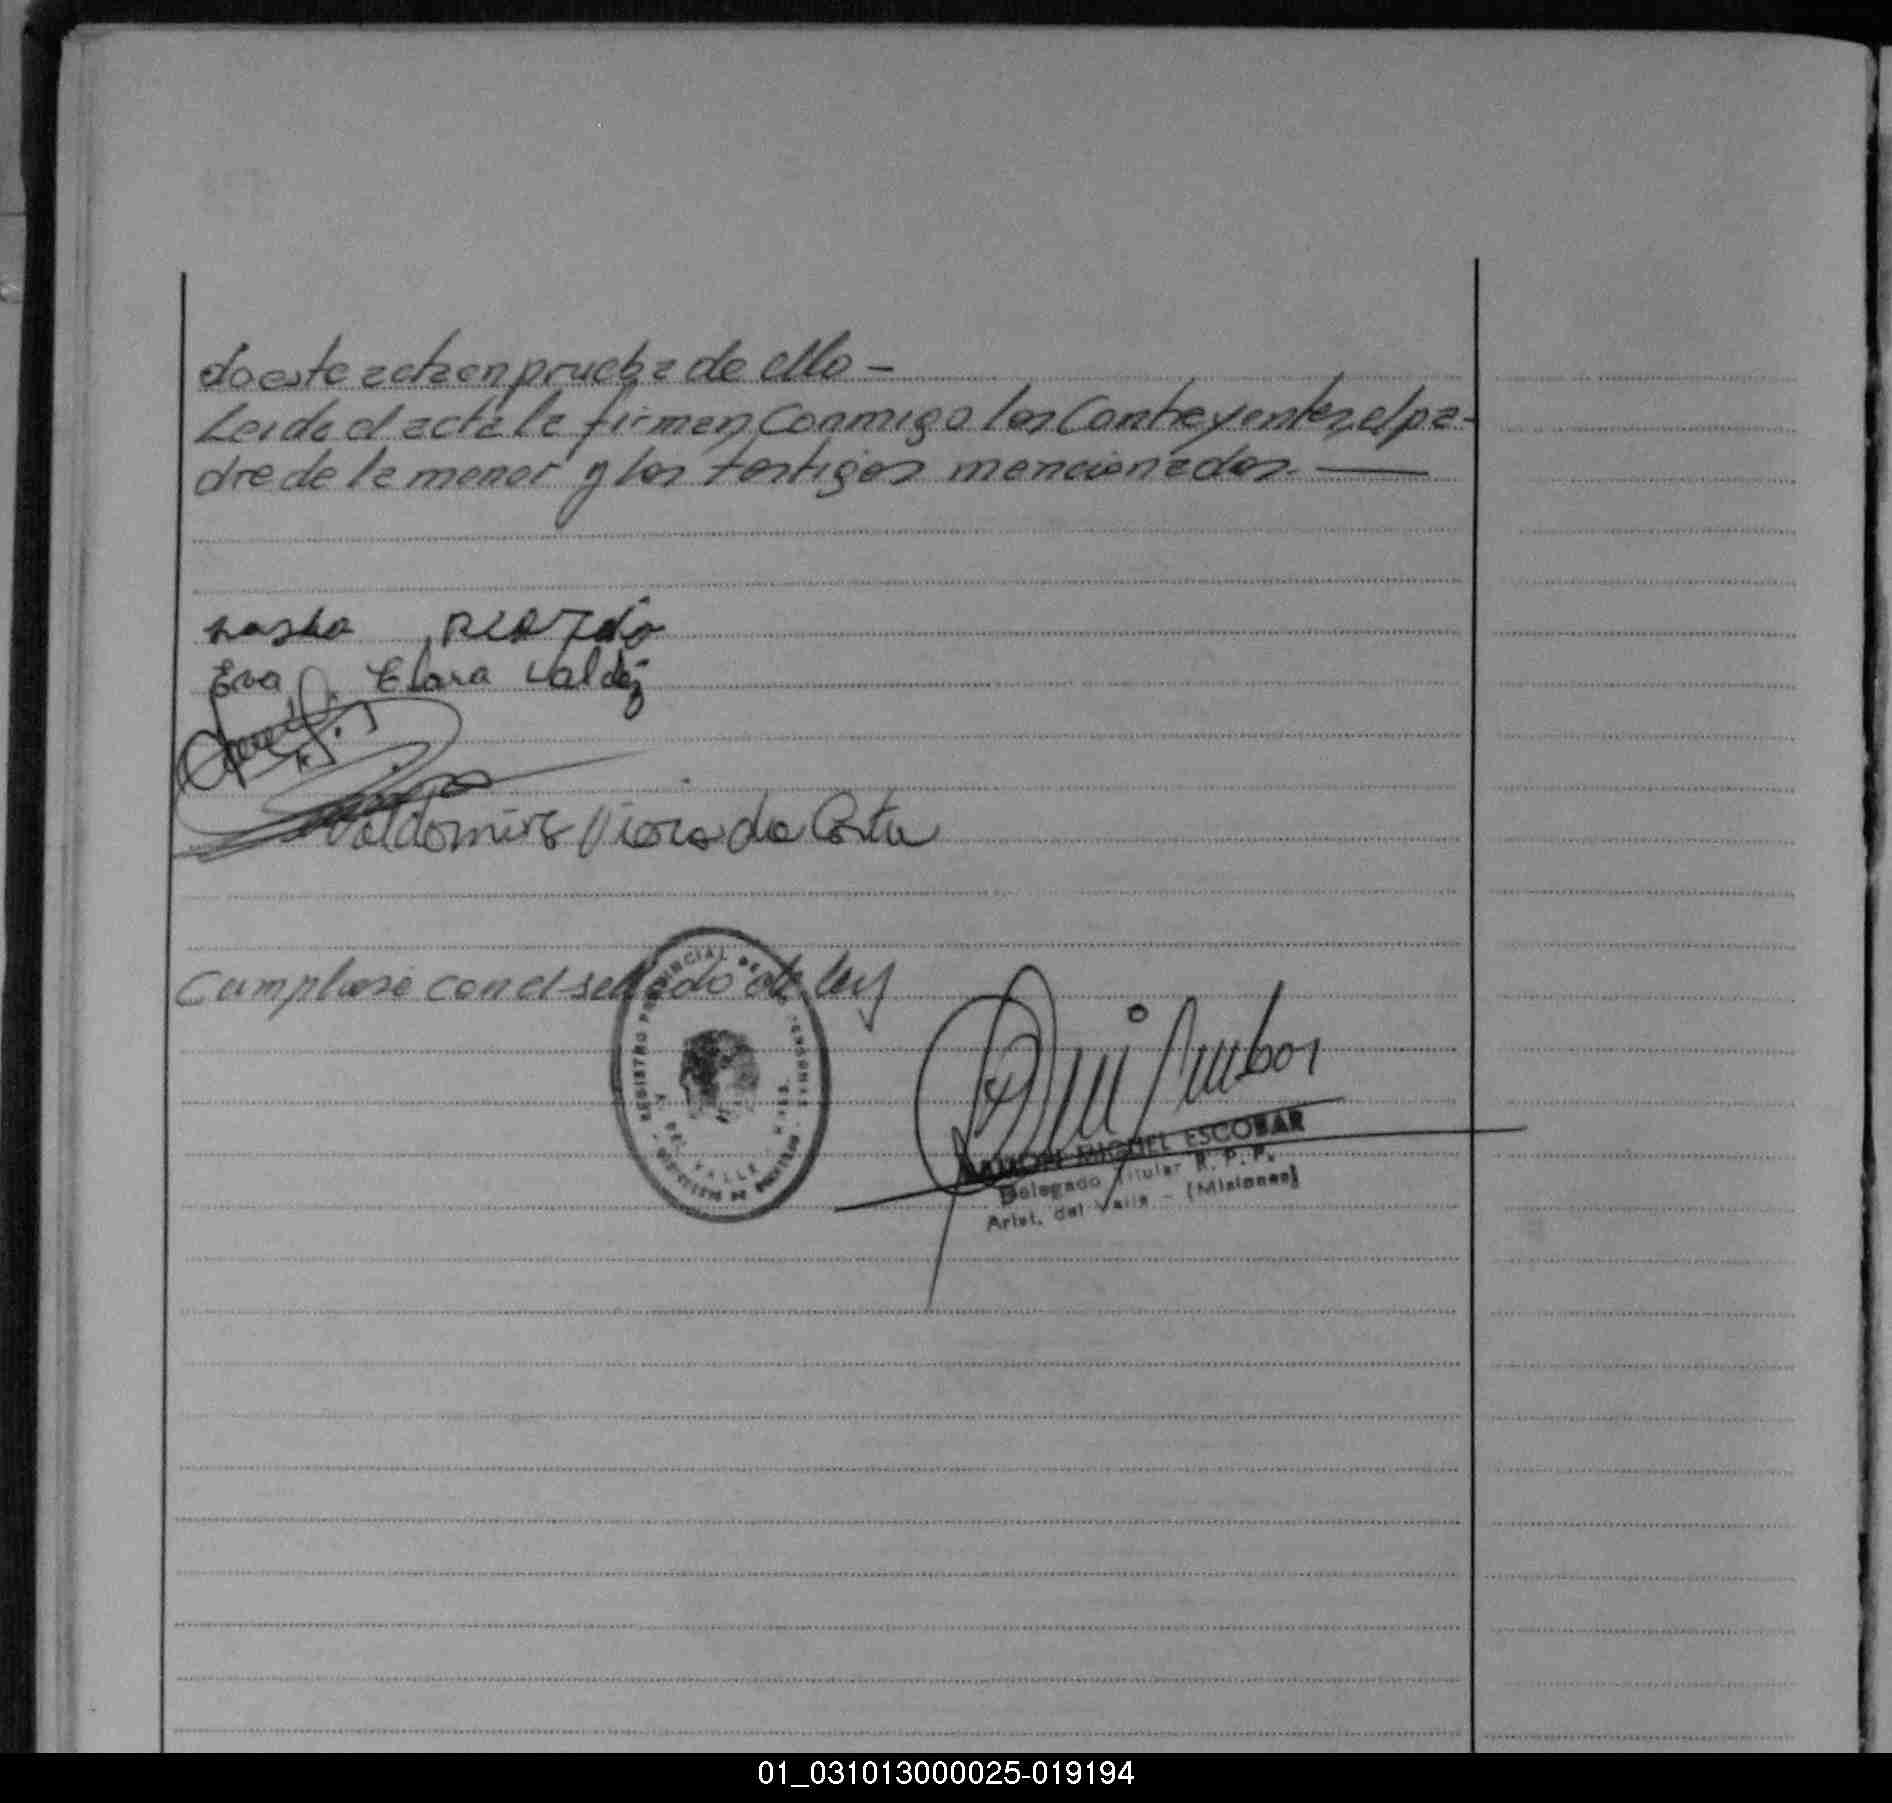 do este acta en prueba de ello -
Leida el acta la firman conmigo los Contrayentes, el pa-
dre de la menor y los testigos mencionados.
Ricardo
Eva Clara Valdéz
Valdomiro Vieira da Costa
Cumplase con el sellado de ley
REGISTRO PROVINCIAL DE LAS PERSONAS
A. DEL VALLE
RAMON MIGUEL ESCOBAR
Delegado Titular R. P. P.
Arist. del Valle - (Misiones)
01_031013000025-019194